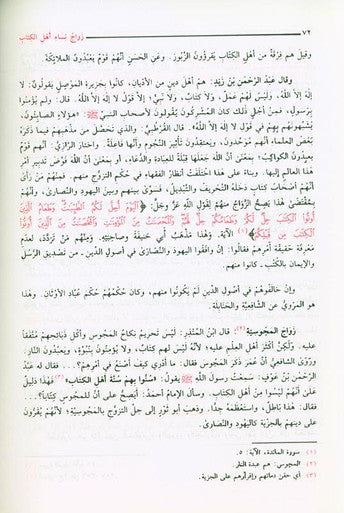 ٧٢ زواج نساء أهل الكتاب
وقيل هم فرقة من أهل الكتاب يقرؤون الزبور. وعن الحسن أنهم قوم يعبدون الملائكة
وقال عبد الرحمن بن زيد: هم أهل دين من الأديان، كانوا بجزيرة الموصل يقولون: لا
إله إلا الله، وليس لهم عمل، ولا كتاب، ولا نبي؛ إلا قول لا إله إلا الله. قال: ولم يؤمنوا
برسول، فمن أجل ذلك كان المشركون يقولون لأصحاب النبي ﷺ: «هؤلاء الصابئون،
يشبهونهم بهم في قول لا إله إلا الله». قال القرطبي: والذي تحصل من مذهبهم فيما ذكره
بعض العلماء أنهم موحدون، ويعتقدون تأثير النجوم وأنها فاعلة. واختار الرازي: أنهم قوم
يعبدون الكواكب؛ بمعنى أن الله جعلها قبلة للعبادة والدعاء، أو بمعنى أن الله فوض تدبير أمر
هذا العالم إليها. وبناء على هذا اختلفت أنظار الفقهاء في حكم التزوج منهم. فمنهم من رأى
أنهم أصحاب كتاب دخله التحريف والتبديل، فسوى بينهم وبين اليهود والنصارى، وأنهم
بمقتضى هذا يصح الزواج منهم لقول الله عز وجل: ﴿اليوم أحل لكم الطيبات وطعام الذين
أوتوا الكتاب حل لكم وطعامكم حل لهم والمحصنات من المؤمنات والمحصنات من الذين أوتوا
الكتاب من قبلكم﴾(١) الآية. وهذا مذهب أبي حنيفة وصاحبيه. ومنهم من تردد، لعدم
معرفة حقيقة أمرهم فقالوا: إن وافقوا اليهود والنصارى في أصول الدين ـ من تصديق الرسل
والإيمان بالكتب ـ كانوا منهم.
وإن خالفوهم في أصول الدين لم يكونوا منهم، وكان حكمهم حكم عباد الأوثان. وهذا
هو المروي عن الشافعية والحنابلة.
زواج المجوسية(٢): قال ابن المنذر: ليس تحريم نكاح المجوس وأكل ذبائحهم متفقا
عليه. ولكن أكثر أهل العلم عليه؛ لأنه ليس لهم كتاب، ولا يؤمنون بنبوة، ويعبدون النار.
وروى الشافعي أن عمر ذكر المجوس فقال: ما أدري كيف أصنع في أمرهم؟.. فقال له عبد
الرحمن بن عوف: سمعت رسول الله ﷺ يقول: «سنوا بهم سنة أهل الكتاب»(٣) فهذا دليل
على أنهم ليسوا من أهل الكتاب. وسأل الإمام أحمد: أيصح على أن للمجوس كتابا؟..
فقال: هذا باطل، واستعظمه جدا. وذهب أبو ثور إلى حل التزوج بالمجوسية؛ لأنهم يقرون
على دينهم بالجزية كاليهود والنصارى.
(١) سورة المائدة، الآية: ٥.
(٢) المجوس: هم عبدة النار.
(٣) أي حقن دمائهم وإقرارهم على الجزية.